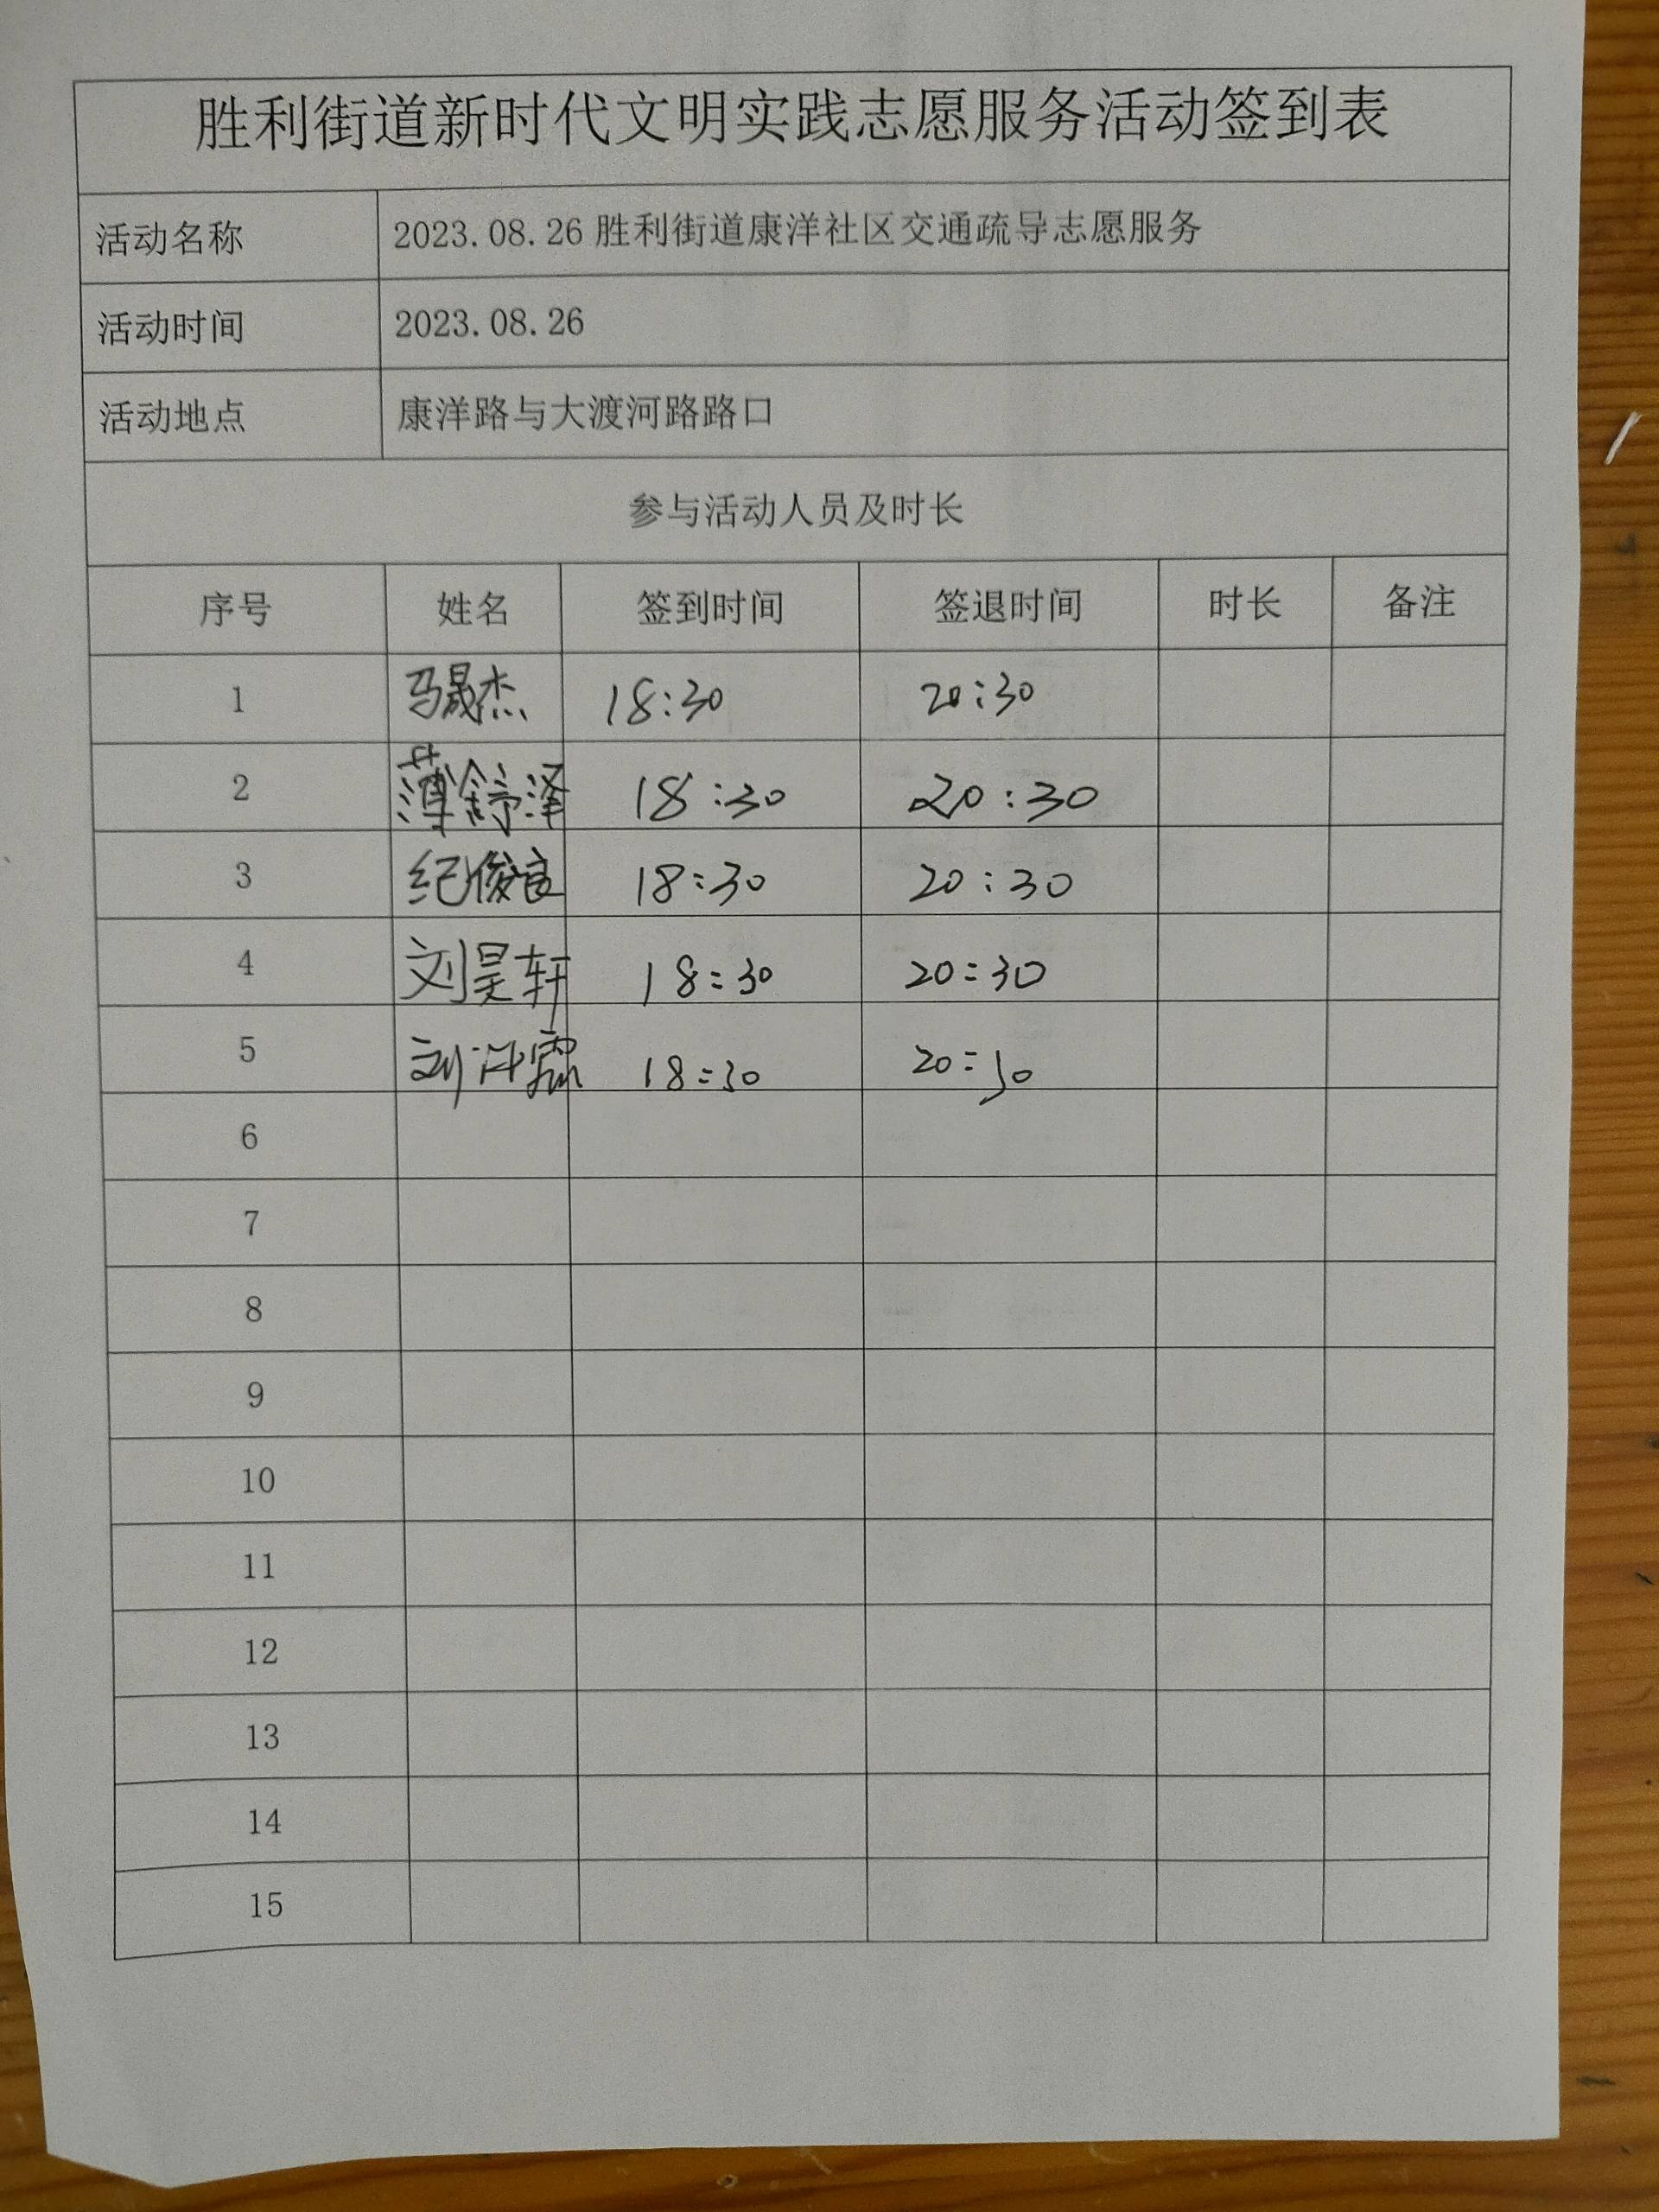 胜利街道新时代文明实践志愿服务活动签到表
活动名称 2023.08.26 胜利街道康洋社区交通疏导志愿服务
活动时间 2023.08.26
活动地点 康洋路与大渡河路路口
参与活动人员及时长
序号 姓名 签到时间 签退时间 时长 备注
1 马晟杰 18:30 20:30
2 薄舒泽 18:30 20:30
3 纪俊良 18:30 20:30
4 刘昊轩 18:30 20:30
5 刘 18:30 20:30
6
7
8
9
10
11
12
13
14
15